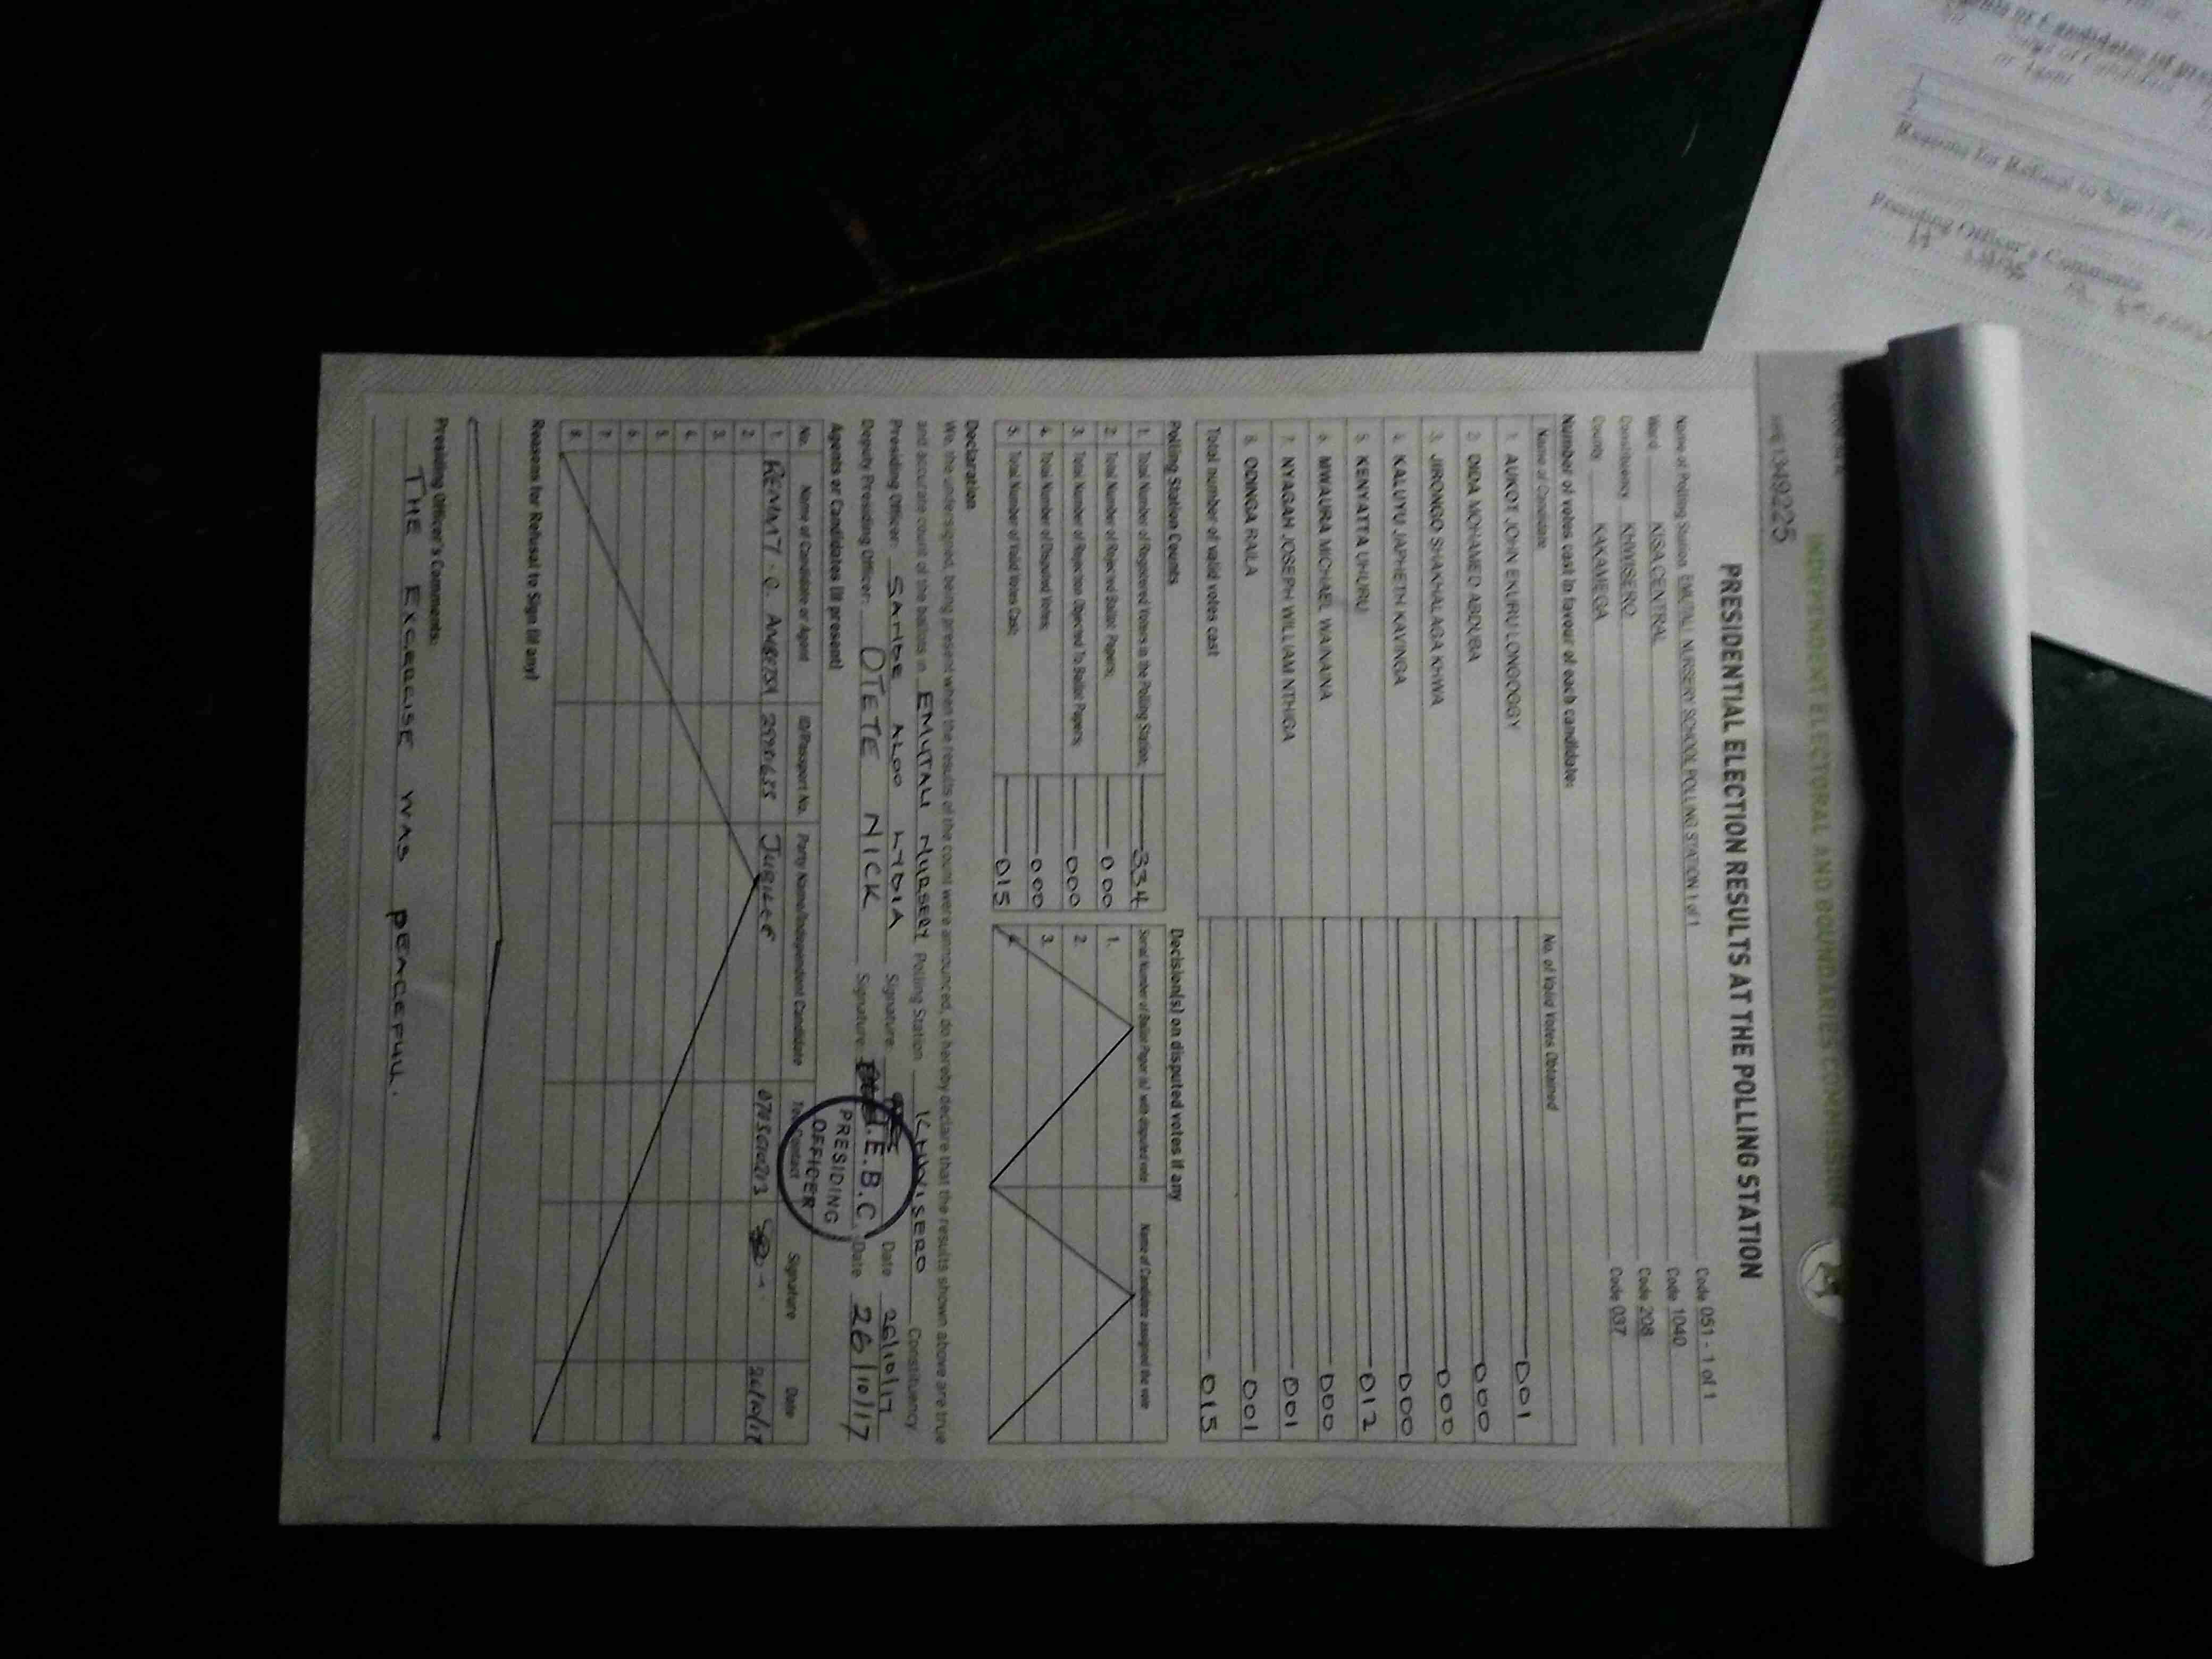 INDEPENDENT ELECTORAL AND BOUNDARIES COMMISSION
1349225
PRESIDENTIAL ELECTION RESULTS AT THE POLLING STATION
Name of Polling Station EMUTALI NURSERY SCHOOL POLLING STATION 1 of 1 Code 051 - 1 of 1
Ward KISA CENTRAL Code 1040
Constituency KHWISERO Code 208
County KAKAMEGA Code 037
Number of votes cast in favour of each candidate:
Name of Candidate No. of Valid Votes Obtained
1. AUKOT JOHN EKURU LONGOGGY 001
2. DIDA MOHAMED ABDUBA 000
3. JIRONGO SHAKHALAGA KHWA 000
4. KALUYU JAPHETH KAVINGA 000
5. KENYATTA UHURU 012
6. MWAURA MICHAEL WAINAINA 000
7. NYAGAH JOSEPH WILLIAM NTHIGA 001
8. ODINGA RAILA 001
Total number of valid votes cast 015
Polling Station Counts
1. Total Number of Registered Voters in the Polling Station; 334
2. Total Number of Rejected Ballot Papers; 000
3. Total Number of Rejection Objected To Ballot Papers; 000
4. Total Number of Disputed Votes; 000
5. Total Number of Valid Votes Cast; 015
Decision(s) on disputed votes if any
Serial Number of Ballot Paper (s) with disputed votes Name of Candidate assigned the vote
1.
2.
3.
4.
Declaration
We, the undersigned, being present when the results of the count were announced, do hereby declare that the results shown above are true
and accurate count of the ballots in EMUTALI NURSERY Polling Station KHWISERO Constituency
Presiding Officer: ALOO LYDIA Signature: Date 26/10/17
Deputy Presiding Officer: OTETE NICK Signature: Date 26/10/17
I.E.B.C.
PRESIDING
OFFICER
Agents or Candidates (if present)
No. Name of Candidate or Agent ID/Passport No. Party Name/Independent Candidate Tel. Contact Signature Date
1. JUBILEE 26/10/17
2.
3.
4.
5.
6.
7.
8.
Reasons for Refusal to Sign (if any)
Presiding Officer's Comments:
THE EXCERCISE WAS PEACEFUL.
Reasons for Refusal to Sign
Presiding Officer's Comments